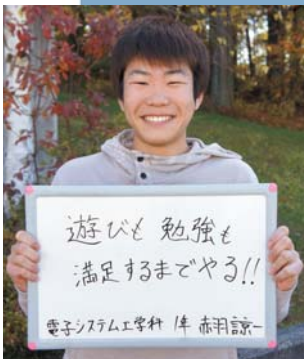 遊びも 勉強も
満足するまでやる!!
電子システム工学科 1年 赤羽諒一